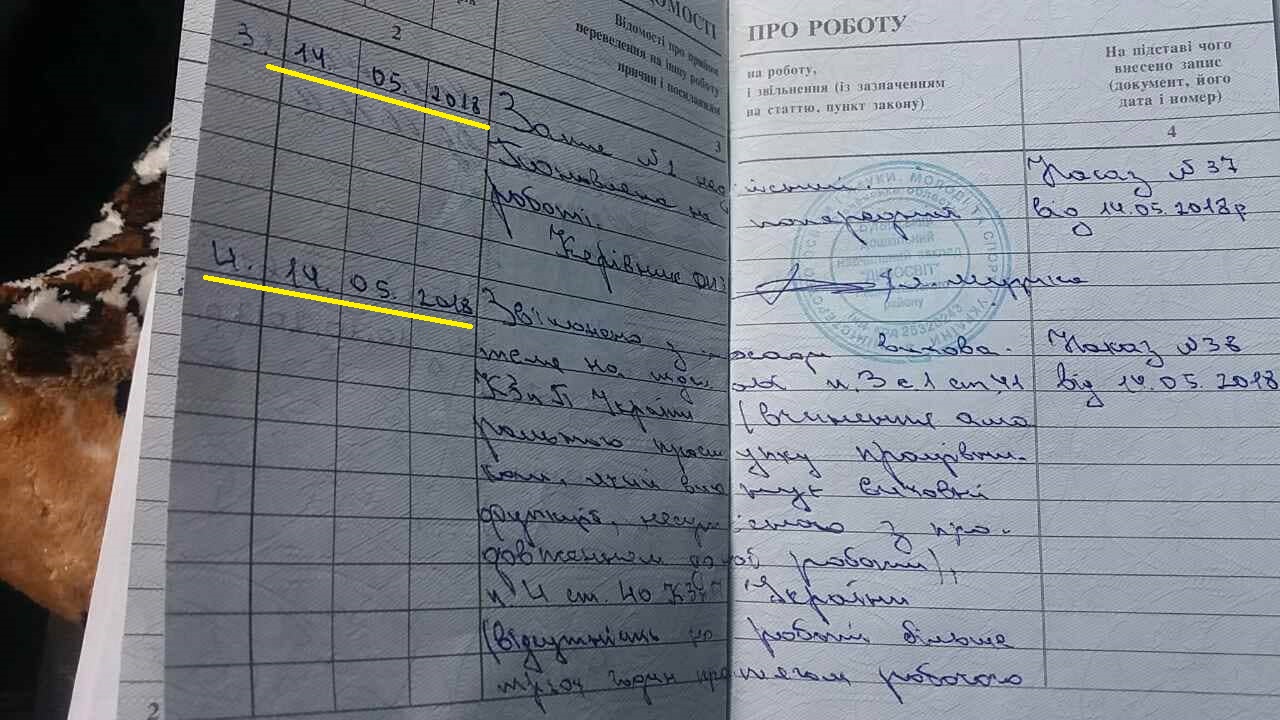 ВІДОМОСТІ
ПРО РОБОТУ
2
Відомості про прийом
переведення на іншу роботу
причин і посиланням
на роботу,
і звільнення (із зазначенням
на статтю, пункт закону)
На підставі чого
внесено запис
(документ, його
дата і номер)
3
4
3. 14. 05. 2018 Запис №1 недійсний. Наказ №37
Поновлена на попередній від 14.05.2018р
роботі.
Керівник ДНЗ
4. 14. 05. 2018 Звільнено з посади вихова- Наказ №38
теля на підставі п.3 ч1 ст.41 від 14.05.2018
КЗпП України (вчинення амо
рального проступку працівни-
ком, який виконує виховні
функції, несумісного з про-
довженням даної роботи),
п 4 ст. 40 КЗпП України
(відсутність на роботі більше
трьох годин протягом робочого
2